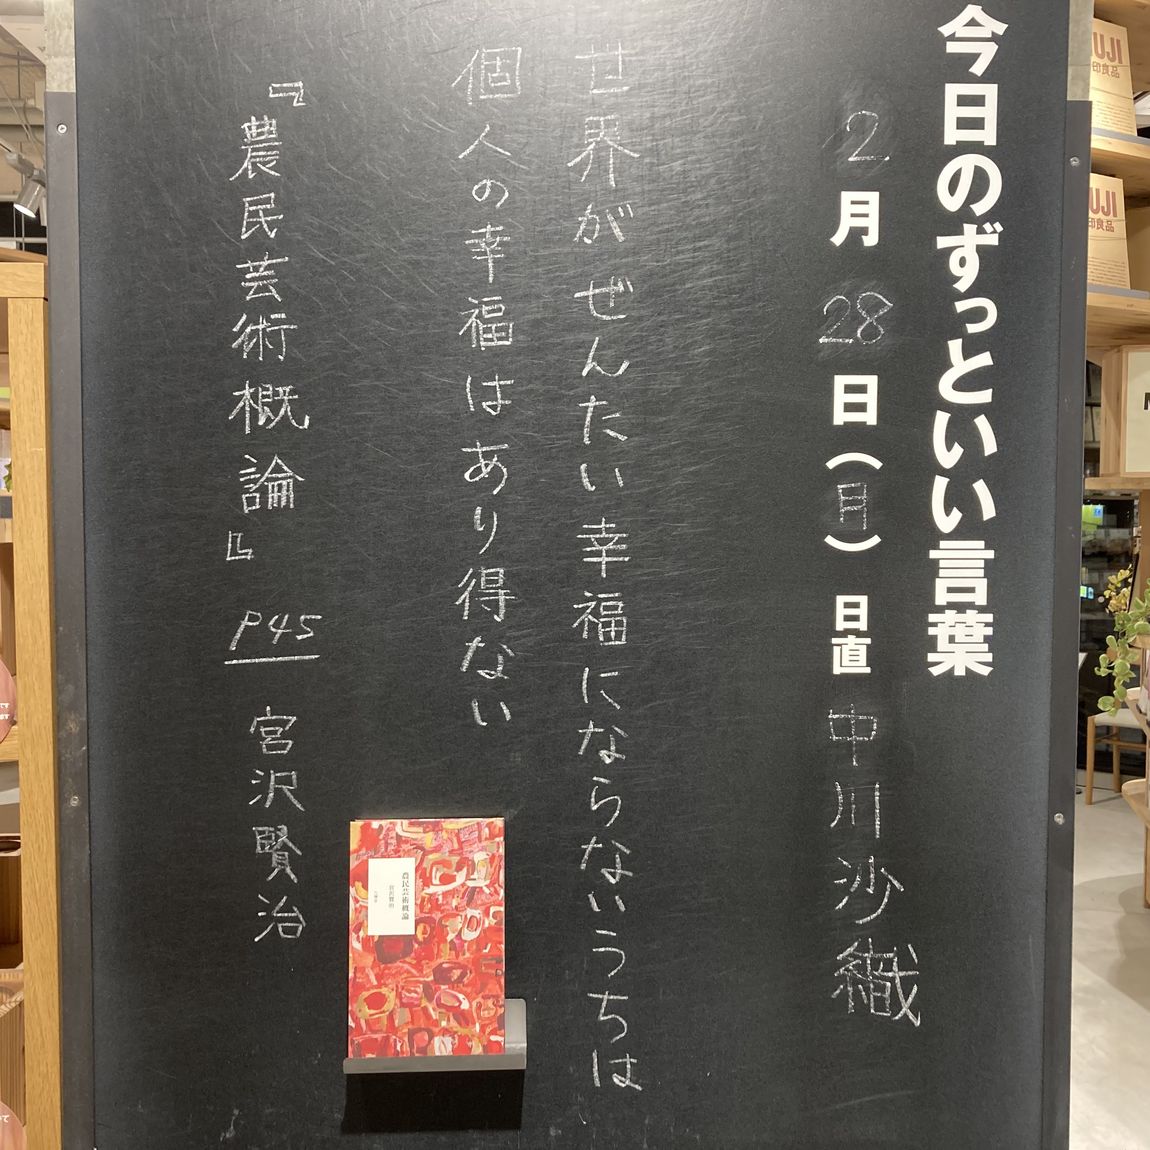 今日のずっといい言葉
2月28日(月) 日直 中川沙織
世界がぜんたい幸福にならないうちは
個人の幸福はあり得ない
『農民芸術概論』 P45 宮沢賢治
農民芸術概論
宮沢賢治
UJI
印良品
UJI
印良品